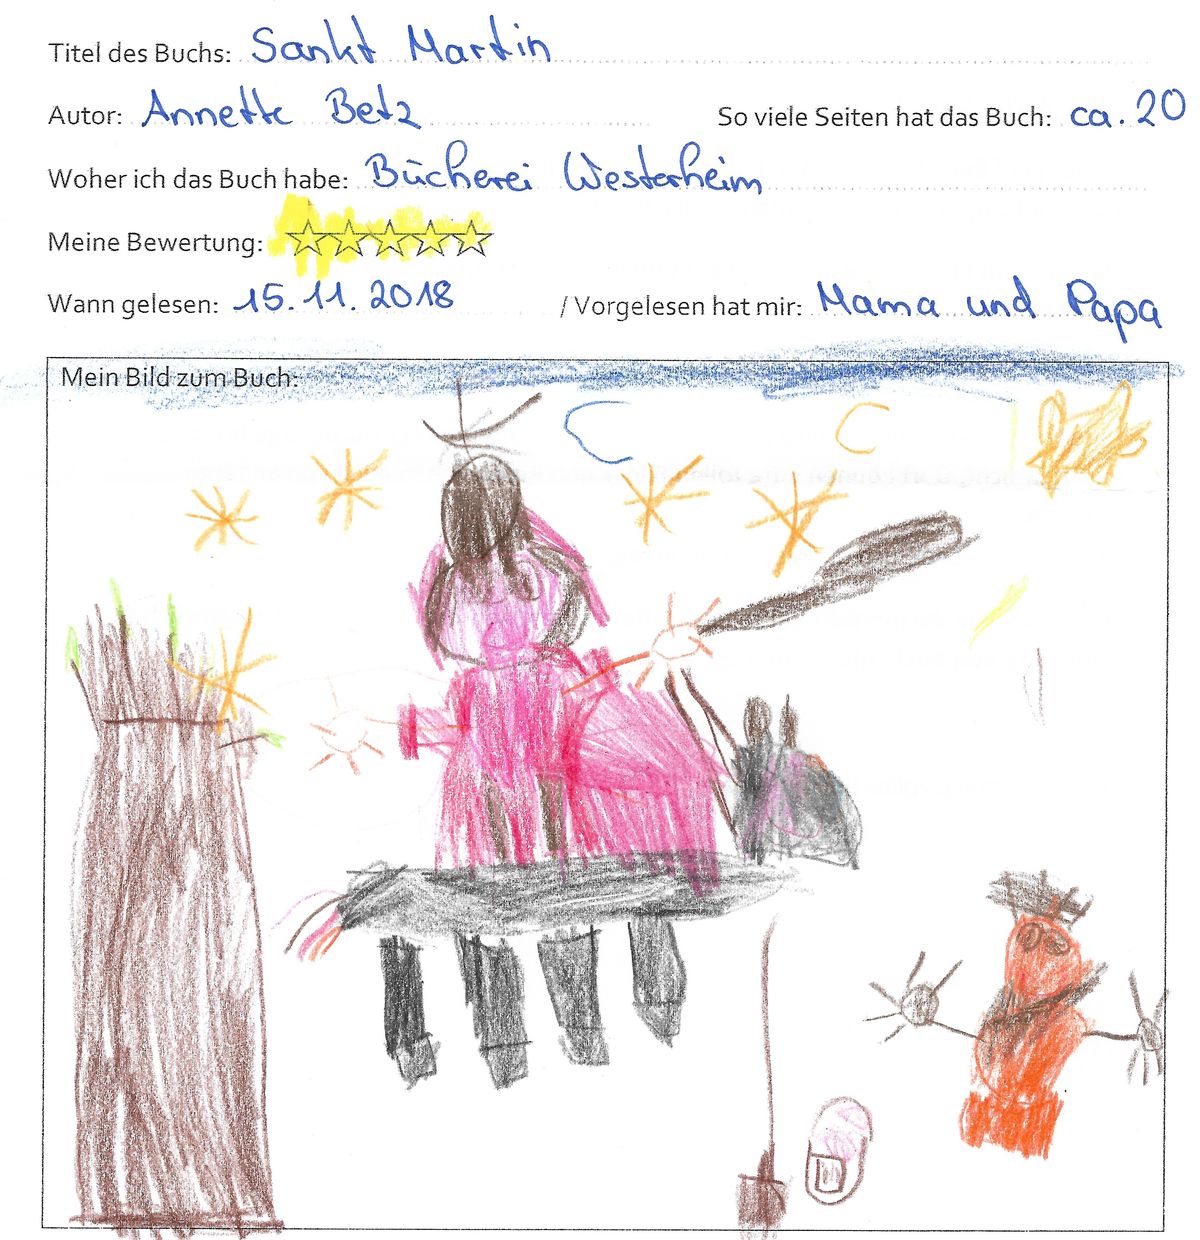 Titel des Buchs: Sankt Martin
Autor: Annette Betz So viele Seiten hat das Buch: ca. 20
Woher ich das Buch habe: Bücherei Westerheim
Meine Bewertung: ☆☆☆☆☆
Wann gelesen: 15.11.2018 / Vorgelesen hat mir: Mama und Papa
Mein Bild zum Buch: